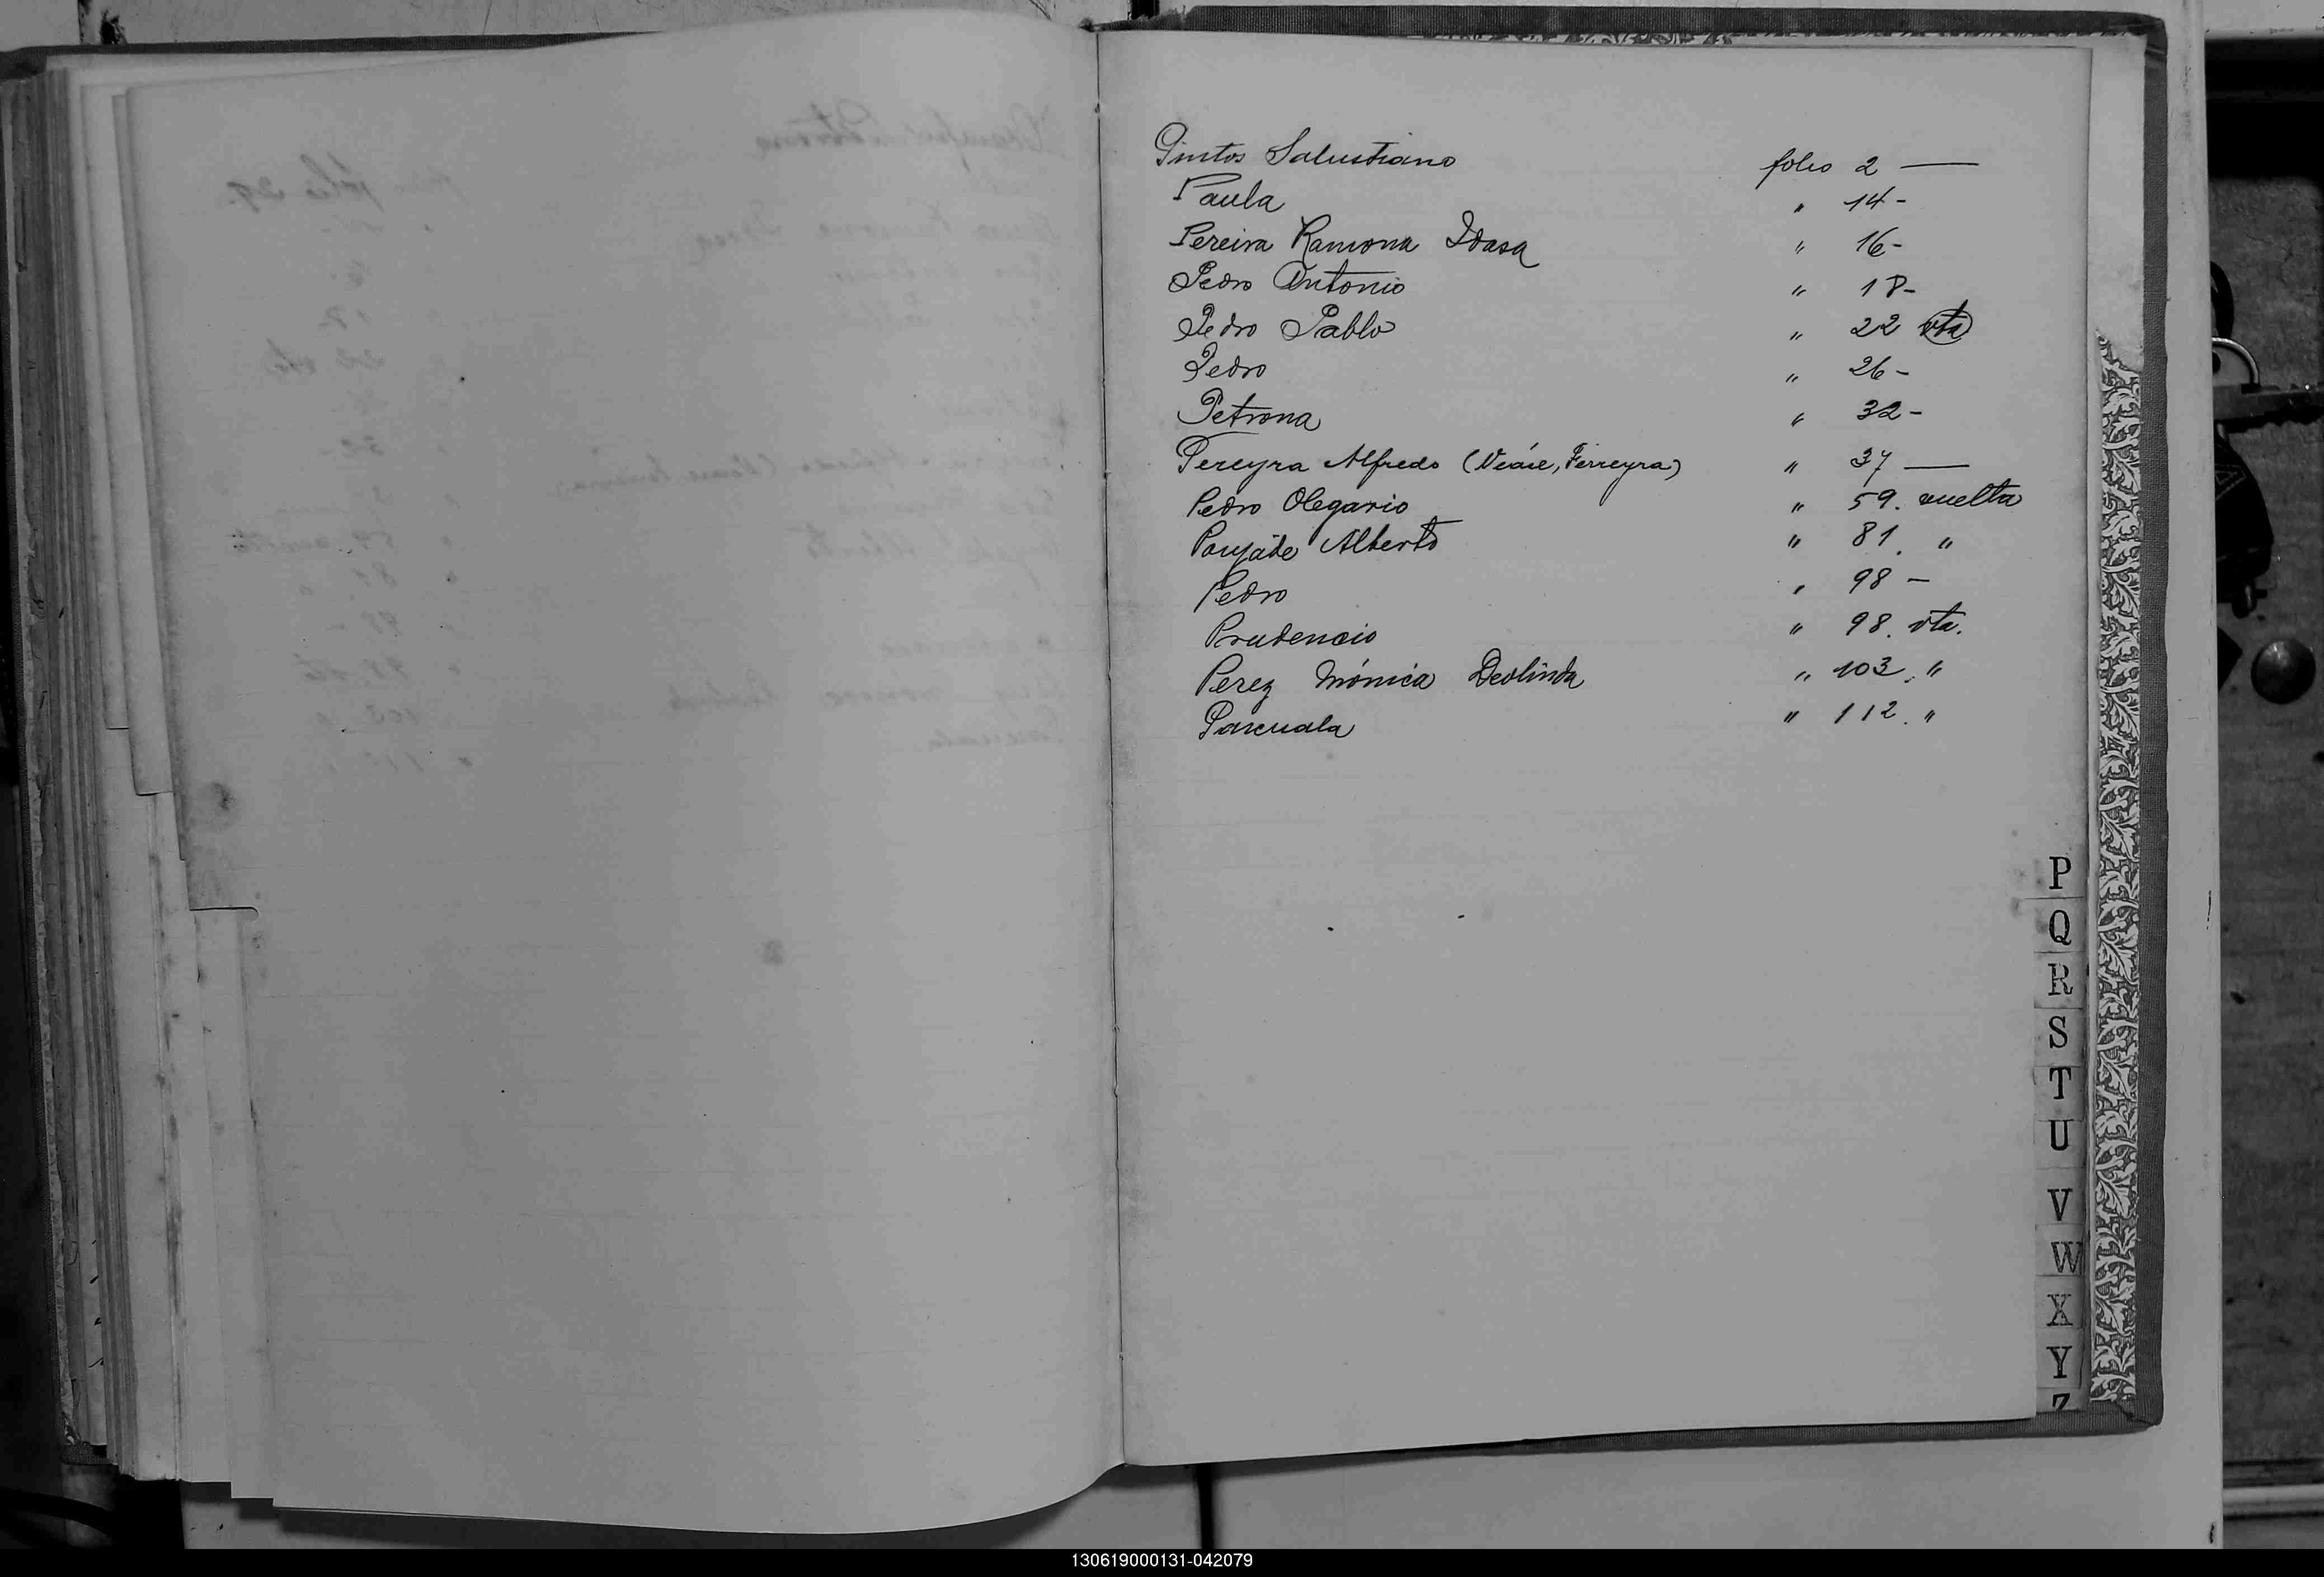 Pintos Salustiano folio 2 —
Paula " 14 -
Pereira Ramona Idasa " 16 -
Pedro Antonio " 18 -
Pedro Pablo " 22 vta
Pedro " 26 -
Petrona " 32 -
Pereyra Alfredo (Véase, Ferreyra) " 37 —
Pedro Olegario " 59. vuelta
Poujade Alberto " 81. "
Pedro " 98 -
Prudencio " 98. vta.
Perez Mónica Deolinda " 103. "
Pascuala " 112. "
P
Q
R
S
T
U
V
W
X
Y
Z
130619000131-042079